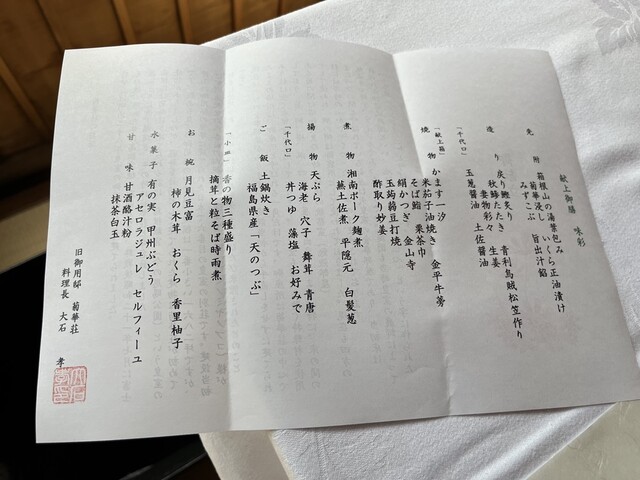 献上御膳 味彩
先附 箱根山の湯葉包み いくら正油漬け
菊華浸し 旨出汁餡
みずこし
造り 戻り鰹炙り 青利烏賊松笠作り
秋鯵たたき 生姜
妻物彩々
「千代口」
玉葱醤油 土佐醤油
「献上籠」
焼物 かます一汐
米茄子油焼き 金平牛蒡
そば鮨 栗茶巾
絹かつぎ 金山寺
玉蒟蒻豆打焼
酢取り妙姜
煮物 湘南ポーク麹煮
蕪土佐煮 平隠元 白髪葱
揚物 天ぷら
海老 穴子 舞茸 青唐
「千代口」
丼つゆ 藻塩 お好みで
ご飯 土鍋炊き
福島県産「天のつぶ」
「小皿」
香の物三種盛り
摘茸と粒そば時雨煮
お椀 月見豆富
柿の木茸 おくら 香里柚子
水菓子 有の実 甲州ぶどう
アセロラジュレ セルフィーユ
甘味 甘酒酪汁粉
抹茶白玉
旧御用邸 菊華荘
料理長 大石 孝